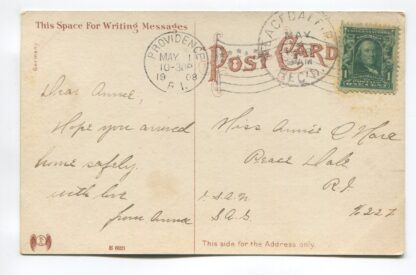 This Space For Writing Messages
Germany
PROVIDENCE
MAY 1
10-30P
1908
R.I.
POST CARD
MAY
REC'D.
1
Dear Annie,
Hope you arrived
home safely.
with love
from Anna
Miss Annie
Peace Dale
R.I.
This side for the Address only.